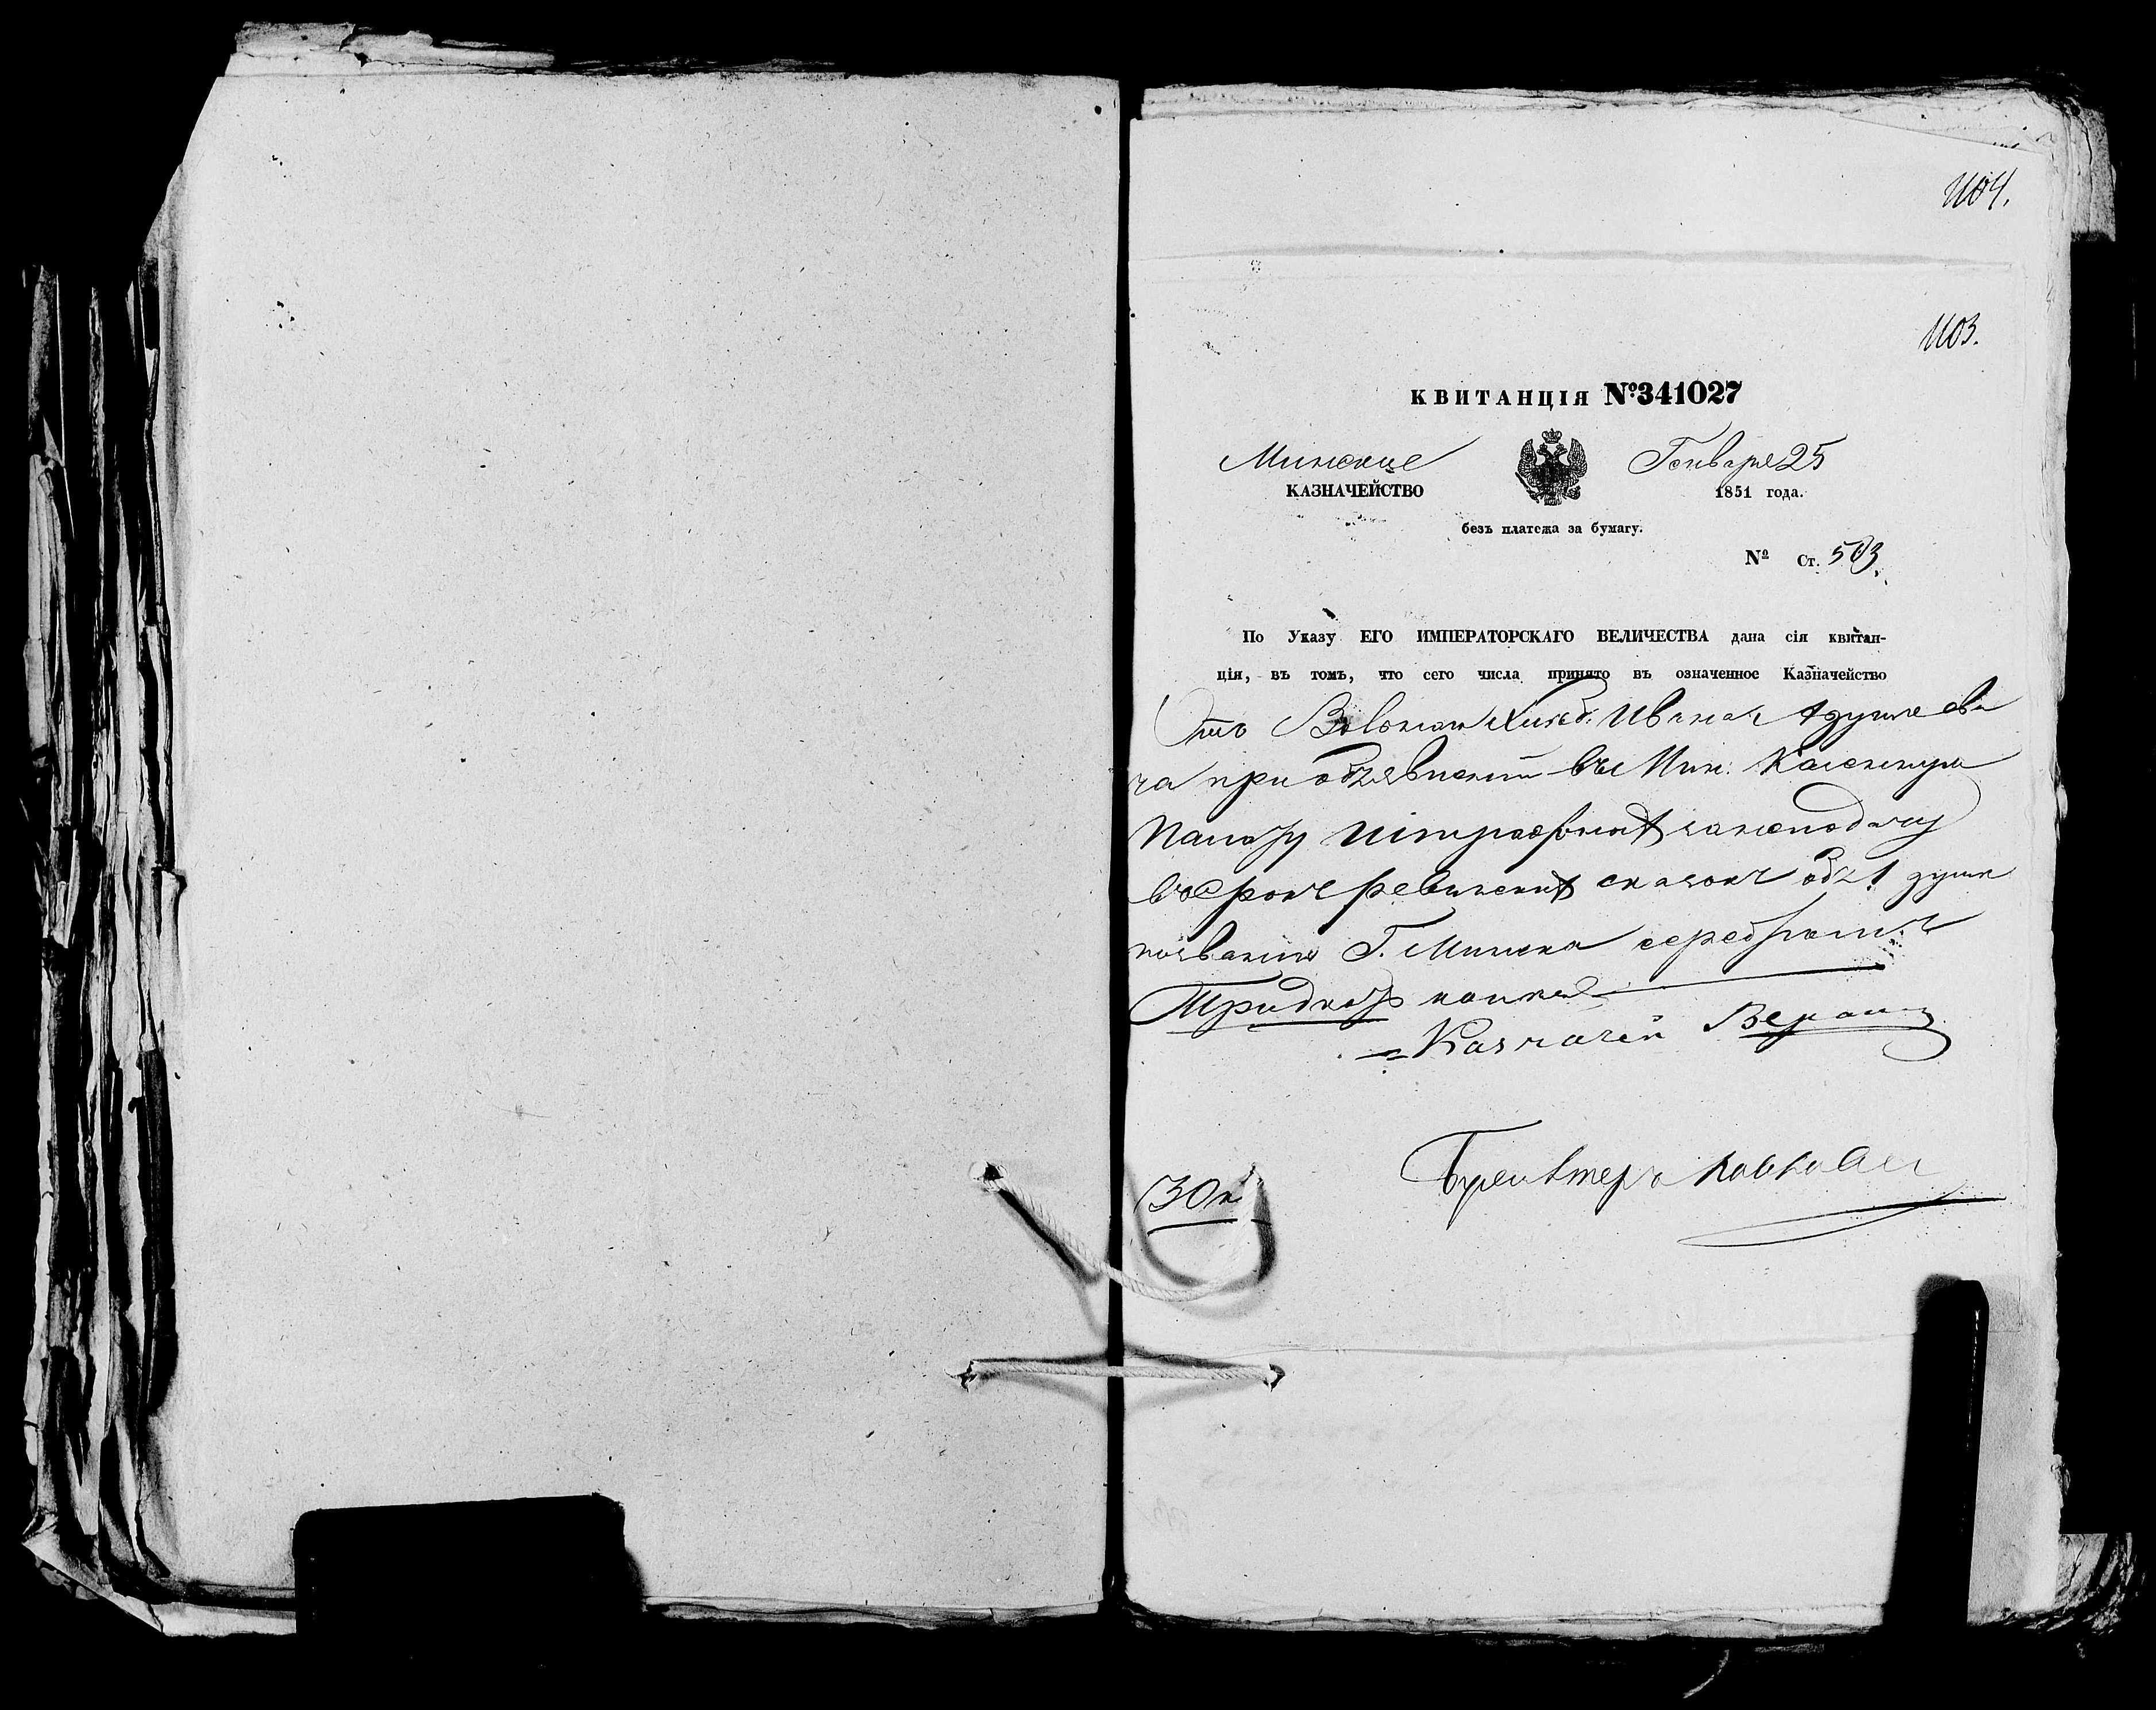 1104.
1103.
КВИТАНЦІЯ №341027
Минское Генваря 25
КАЗНАЧЕЙСТВО 1851 года.
безъ платежа за бумагу.
№ Ст. 503.
По Указу ЕГО ИМПЕРАТОРСКАГО ВЕЛИЧЕСТВА дана сія квитан-
ція, въ томъ, что сего числа принято въ означенное Казначейство
Отъ Ивана
ча при объявленіи въ Мин: Казенную
Палату штрафныхъ за неподачу
въ срокъ ревизскихъ сказокъ объ 1 душѣ
Г. Минска серебромъ
Тридцать копѣекъ
Казначей
30 к
Бухгалтеръ